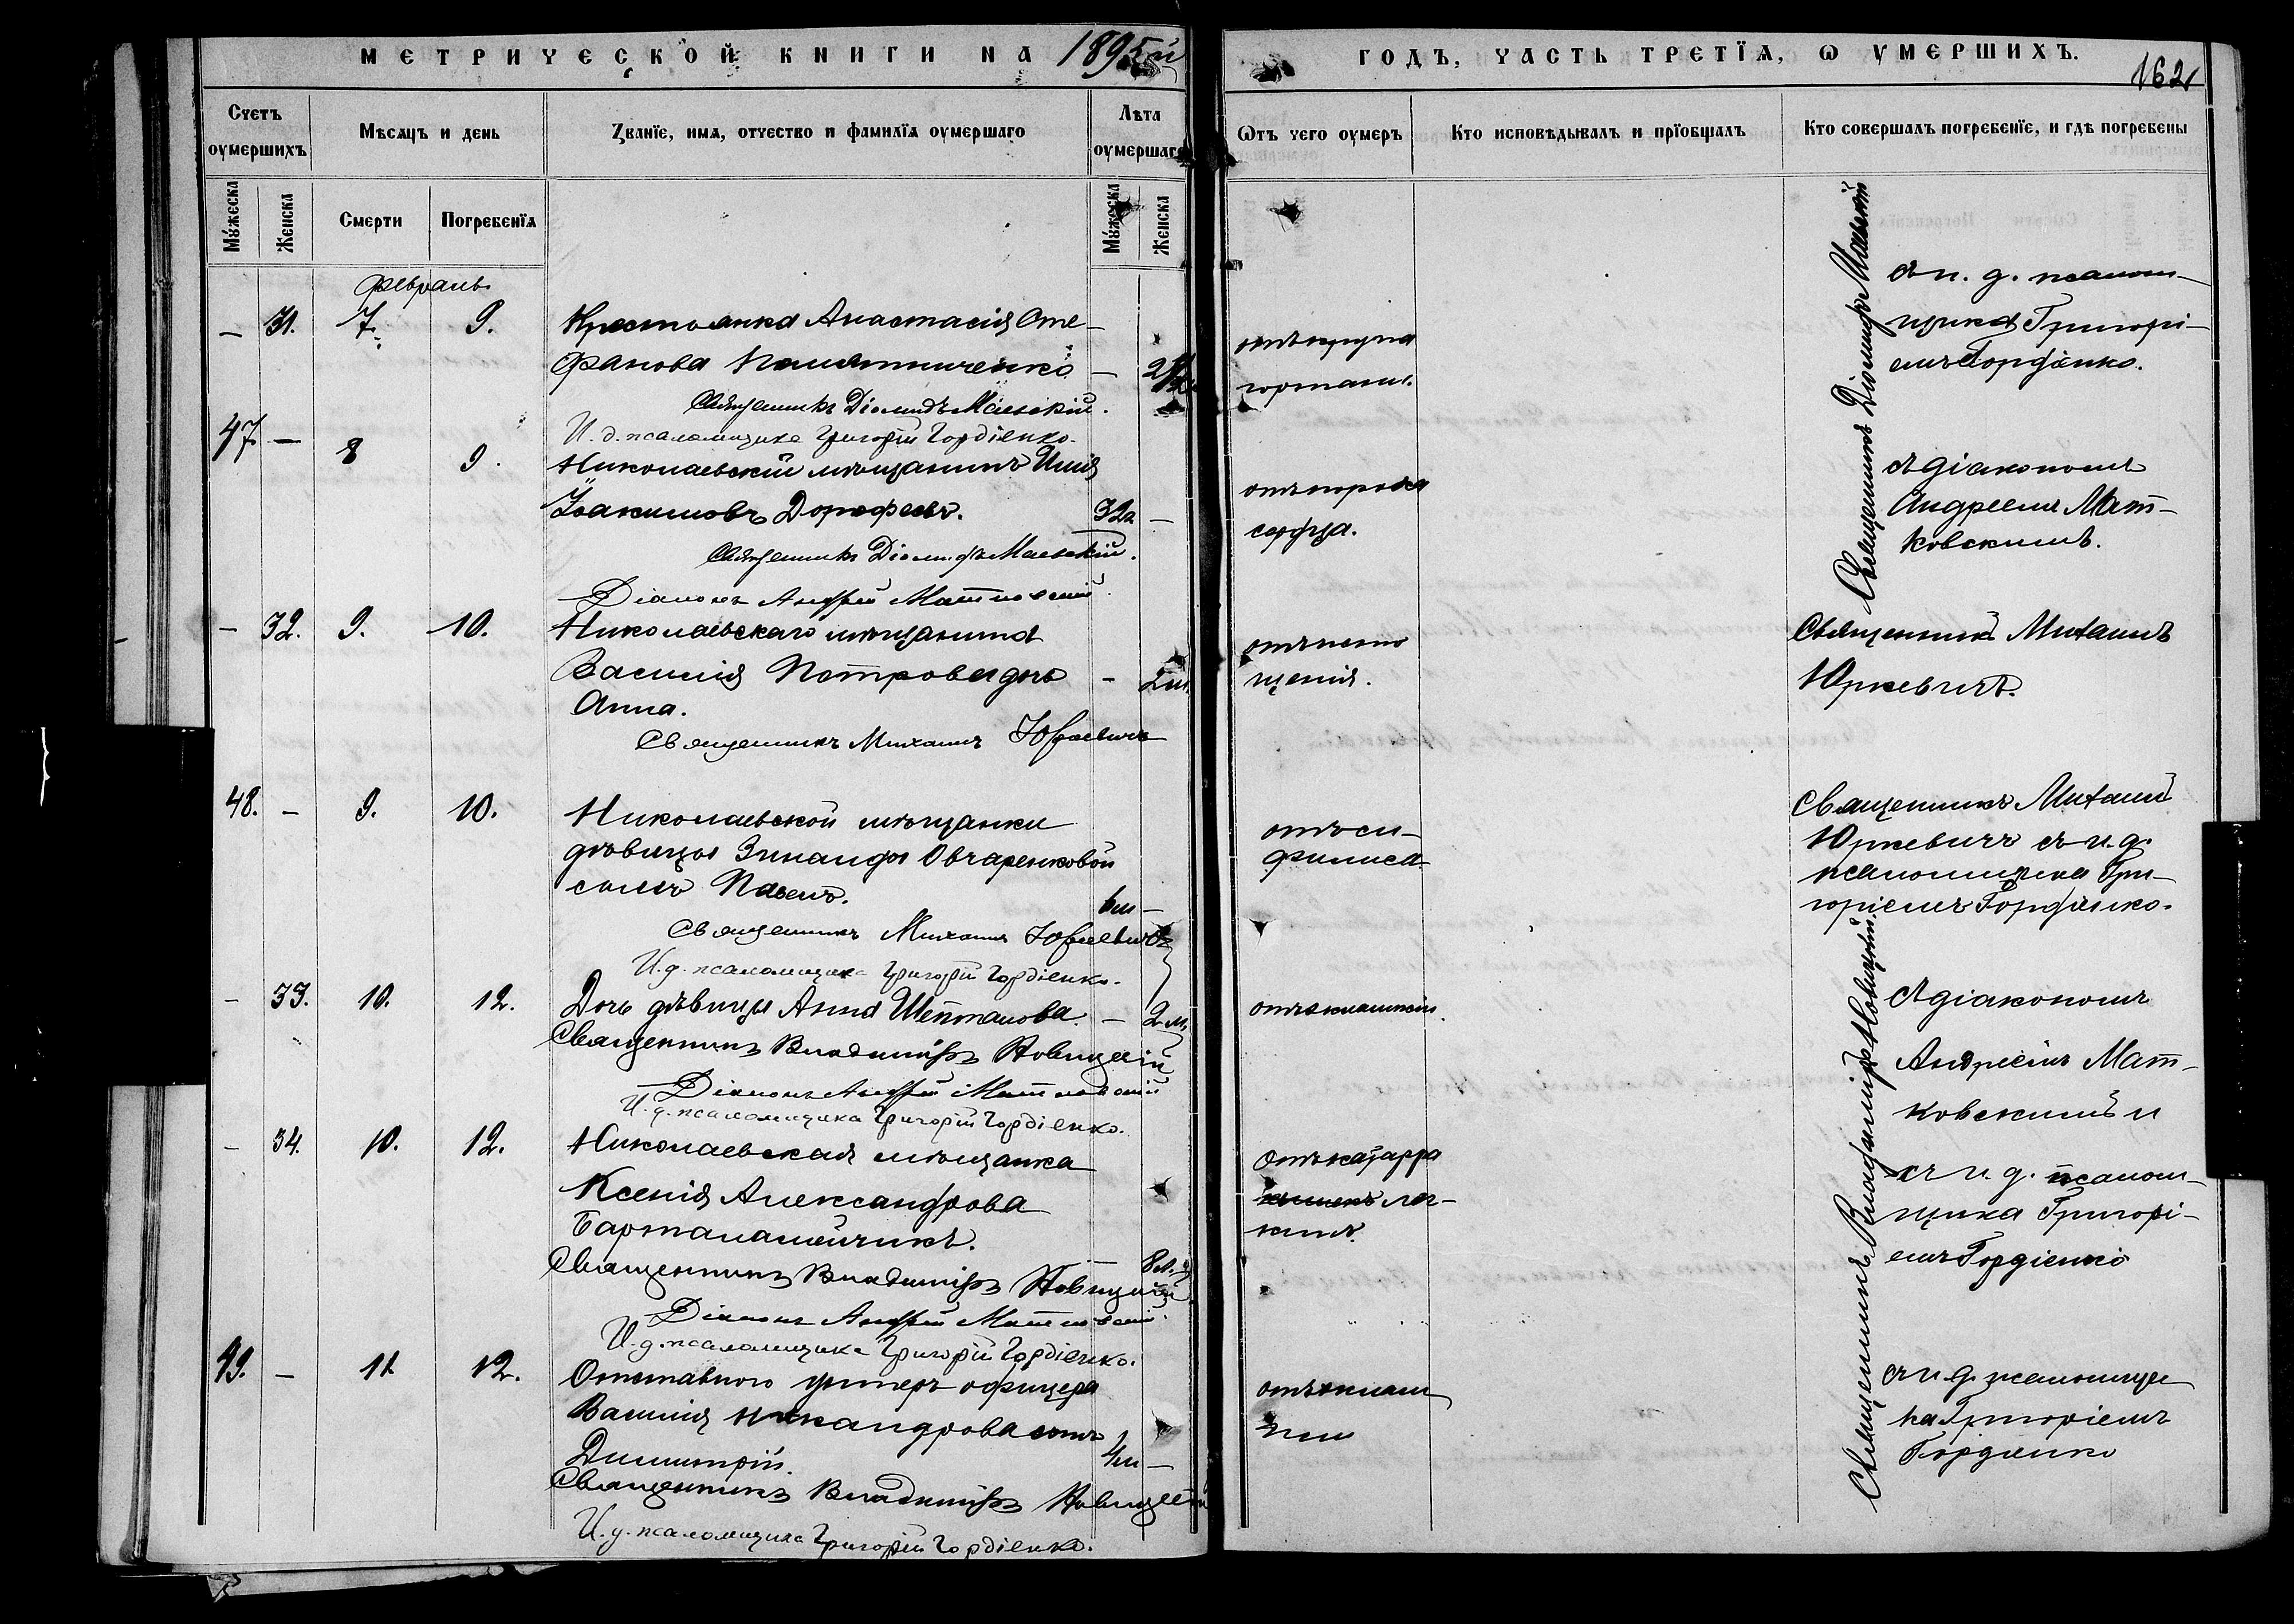 МЕТРИЧЕСКОЙ КНИГИ НА 1895й
ГОДЪ, ЧАСТЬ ТРЕТЇѦ, Ѡ УМЕРШИХЪ.
162
Счетъ оумершихъ
Мѣсѧцъ и день
Званїе, имѧ, отчество и фамилїѧ оумершаго
Лѣта оумершаго
Ѿтъ чего оумеръ
Кто исповѣдывалъ и прїобщалъ
Кто совершалъ погребенїе, и гдѣ погребены
Мужеска
Женска
Смерти
Погребенїѧ
Мужеска
Женска
Февраль
— 31. 7. 9.
Крестьянка Анастасія Сте-
фанова —
Священникъ Діомидъ Маевскій.
И. д. псаломщика Григорій Гордіенко.
отъ крупа
гортани.
Священникъ Діомидъ Маевскій
съ и. д. псалом-
щика Григорі-
емъ Гордіенко.
47 — 8 9.
Николаевскій мѣщанинъ Илія
Іоакимовъ Дорофеевъ. 32 —
Священникъ Діомидъ Маевскій.
Діаконъ Андрей Матковскій
отъ порока
сердца.
съ діакономъ
Андреемъ Мат-
ковскимъ.
— 32. 9. 10.
Николаевскаго мѣщанина
Василія Петрова дочь — 2 м.
Анна.
Священникъ Михаилъ Юркевичъ
отъ исто
щенія.
Священникъ Михаилъ
Юркевичъ.
48. — 9. 10.
Николаевской мѣщанки
дѣвицы Зинаиды Овчаренковой
сынъ Павелъ. 6 м —
Священникъ Михаилъ Юркевичъ
И. д. псаломщика Григорій Гордіенко.
отъ си-
филиса
Священникъ Михаилъ
Юркевичъ съ и. д.
псаломщика Гри-
горіемъ Гордіенко.
— 33. 10. 12.
Дочь дѣвицы Анна Шепталова. — 2 м.
Священникъ Владиміръ Новицкій
Діаконъ Андрей Матковскій
И. д. псаломщика Григорій Гордіенко.
отъ эклампсіи.
Священникъ Владиміръ Новицкій
съ діакономъ
Андреемъ Мат-
ковскимъ и
— 34. 10. 12.
Николаевская мѣщанка
Ксенія Александрова
8 м.
Священникъ Владиміръ Новицкій
Діаконъ Андрей Матковскій.
И. д. псаломщика Григорій Гордіенко.
Отъ катарра
кишекъ лег-
кихъ.
съ и. д. псалом-
щика Григорі-
емъ Гордіенко
49. — 11. 12.
Отставного унтеръ офицера
Василія Никандрова сынъ
Димитрій. 4 м —
Священникъ Владиміръ Новицкій
И. д. псаломщика Григорій Гордіенко.
отъ эклам
псіи
съ и. д. псаломщи
ка Григоріемъ
Гордіенко